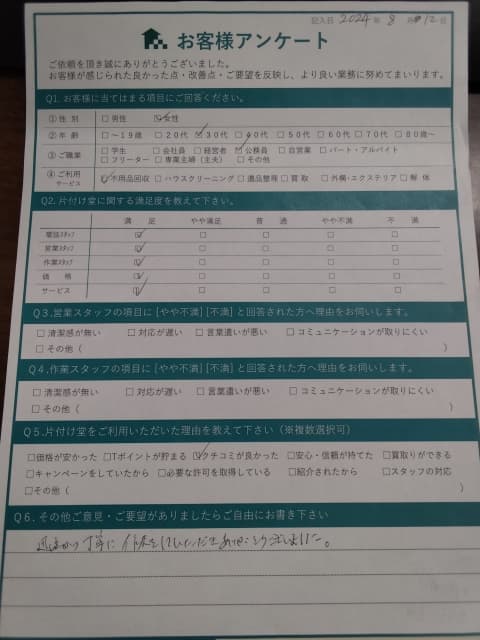 記入日 2024 年 8 月 12 日
お客様アンケート
ご依頼を頂き誠にありがとうございました。
お客様が感じられた良かった点・改善点・ご要望を反映し、より良い業務に努めてまいります。
Q1.お客様に当てはまる項目にご回答ください。
①性 別 □男性 ☑女性
②年 齢 □~19歳 □20代 ☑30代 □40代 □50代 □60代 □70代 □80歳~
③ご職業 □学生 □会社員 □経営者 ☑公務員 □自営業 □パート・アルバイト
□フリーター □専業主婦(主夫) □その他
④ご利用サービス ☑不用品回収 □ハウスクリーニング □遺品整理 □買取 □外構・エクステリア □解体
Q2.片付け堂に関する満足度を教えて下さい。
満 足 やや満足 普 通 やや不満 不 満
電話スタッフ ☑ □ □ □ □
営業スタッフ ☑ □ □ □ □
作業スタッフ ☑ □ □ □ □
価 格 ☑ □ □ □ □
サービス ☑ □ □ □ □
Q3.営業スタッフの項目に[やや不満][不満]と回答された方へ理由をお伺いします。
□清潔感が無い □対応が遅い □言葉遣いが悪い □コミュニケーションが取りにくい
□その他( )
Q4.作業スタッフの項目に[やや不満][不満]と回答された方へ理由をお伺いします。
□清潔感が無い □対応が遅い □言葉遣いが悪い □コミュニケーションが取りにくい
□その他( )
Q5.片付け堂をご利用いただいた理由を教えて下さい(※複数選択可)
□価格が安かった □Tポイントが貯まる ☑クチコミが良かった □安心・信頼が持てた □買取りができる
□キャンペーンをしていたから □必要な許可を取得している □紹介されたから □スタッフの対応
□その他( )
Q6.その他ご意見・ご要望がありましたらご自由にお書き下さい
丁寧に